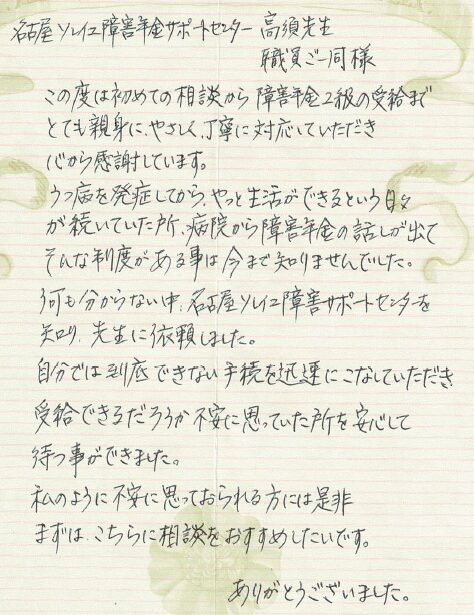 名古屋ソレイユ障害年金サポートセンター 高須先生
職員ご一同様
この度は初めての相談から障害年金2級の受給まで
とても親身に、やさしく、丁寧に対応していただき
心から感謝しています。
うつ病を発症してから、やっと生活ができるという日々
が続いていた所、病院から障害年金の話しが出て
そんな制度がある事は今まで知りませんでした。
何も分からない中、名古屋ソレイユ障害サポートセンターを
知り、先生に依頼しました。
自分では到底できない手続を迅速にこなしていただき
受給できるだろうか不安に思っていた所を安心して
待つ事ができました。
私のように不安に思っておられる方には是非
まずは、こちらに相談をおすすめしたいです。
ありがとうございました。